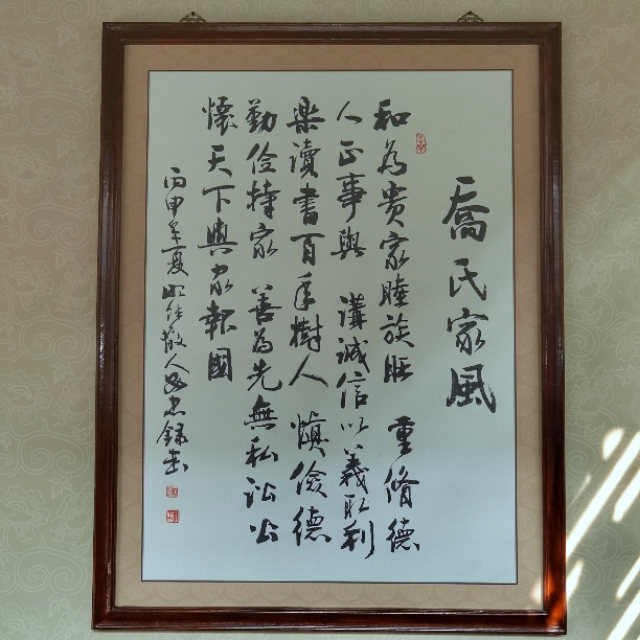 喬氏家風
和為贵家睦族旺 重脩德
人正事興 講誠信以義取利
樂讀書百年樹人 慎儉德
勤俭持家 善為先無私讼公
懷天下興家報國
丙申年夏 散人 忠録書